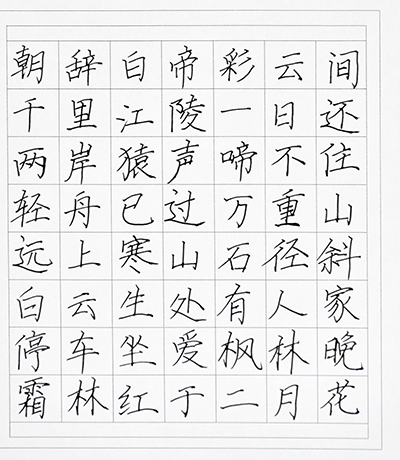 朝辞白帝彩云间
千里江陵一日还
两岸猿声啼不住
轻舟已过万重山
远上寒山石径斜
白云生处有人家
停车坐爱枫林晚
霜林红于二月花